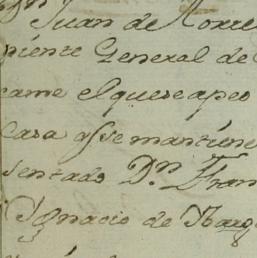 Juan de Torre
niente General de
came el que se apeo
Casa q.e se mantiene
sentado D.n Fran
Ygnacio de Ybarg